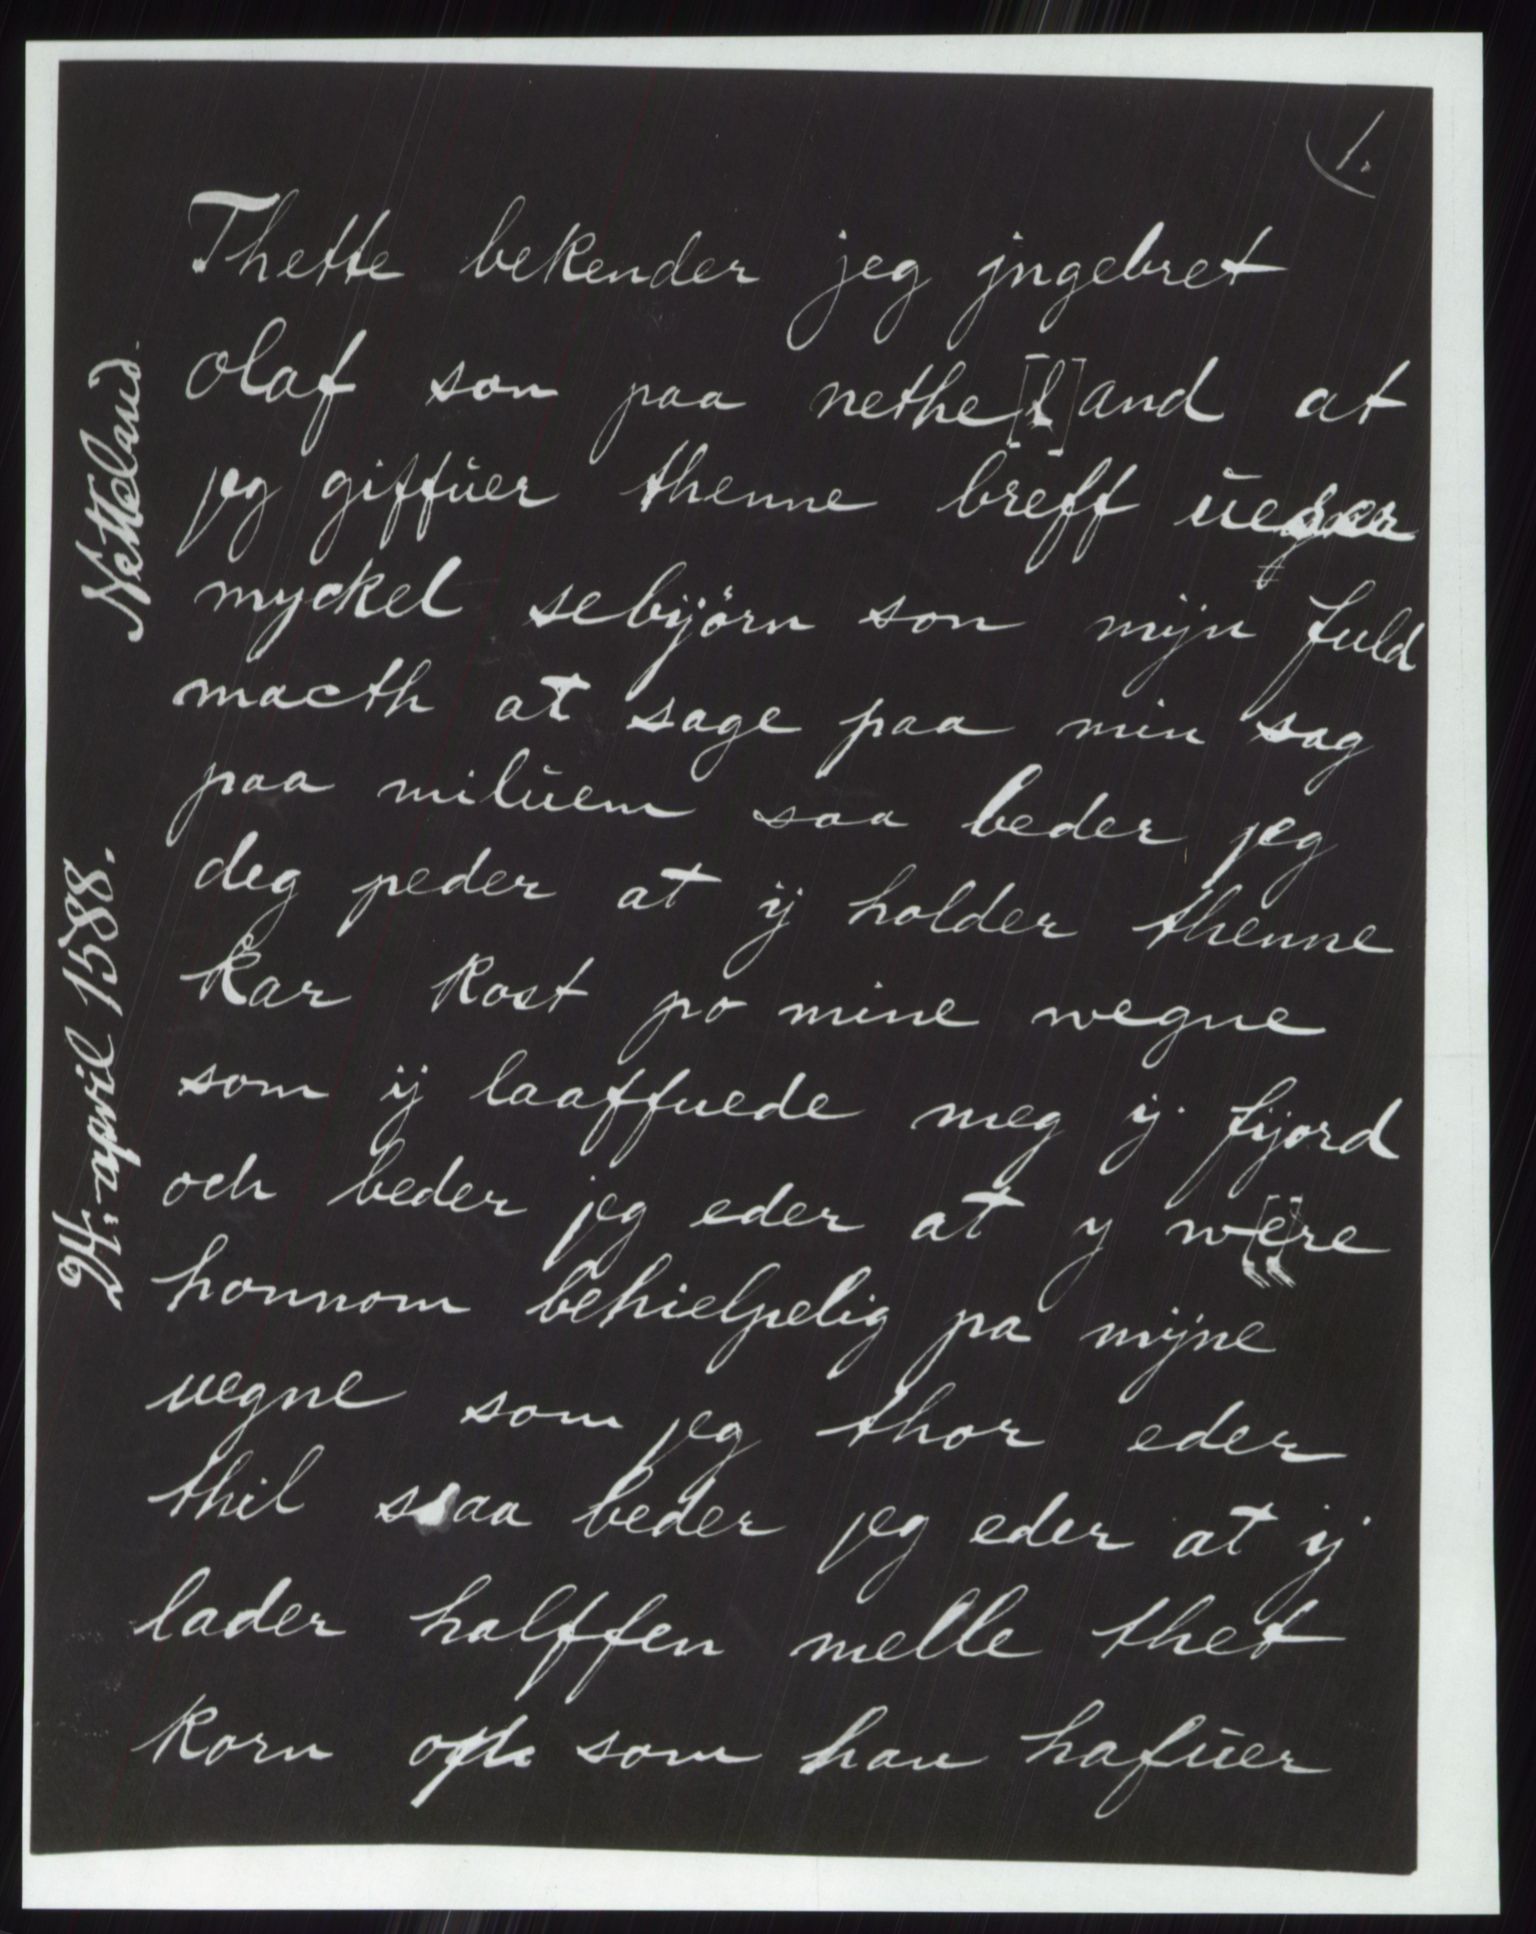 1.
Thette bekender jeg jngebret
olaf son paa nethe[l]and at
jeg giffŭer thenne breff
myckel sebijörn son mijn fuld
macth at sage paa min sag
paa milŭem saa beder jeg
deg peder at ij holder thenne
kar kost po mine wegne
som ij laaffuede meg ij fijord
och beder jeg eder at y w[e]re
honnom behielpelig pa mijne
uegne som jeg thor eder
thil saa beder jeg eder at ij
lader halffen melle thet
korn som han hafŭer
Netteland.
24. april 1588.